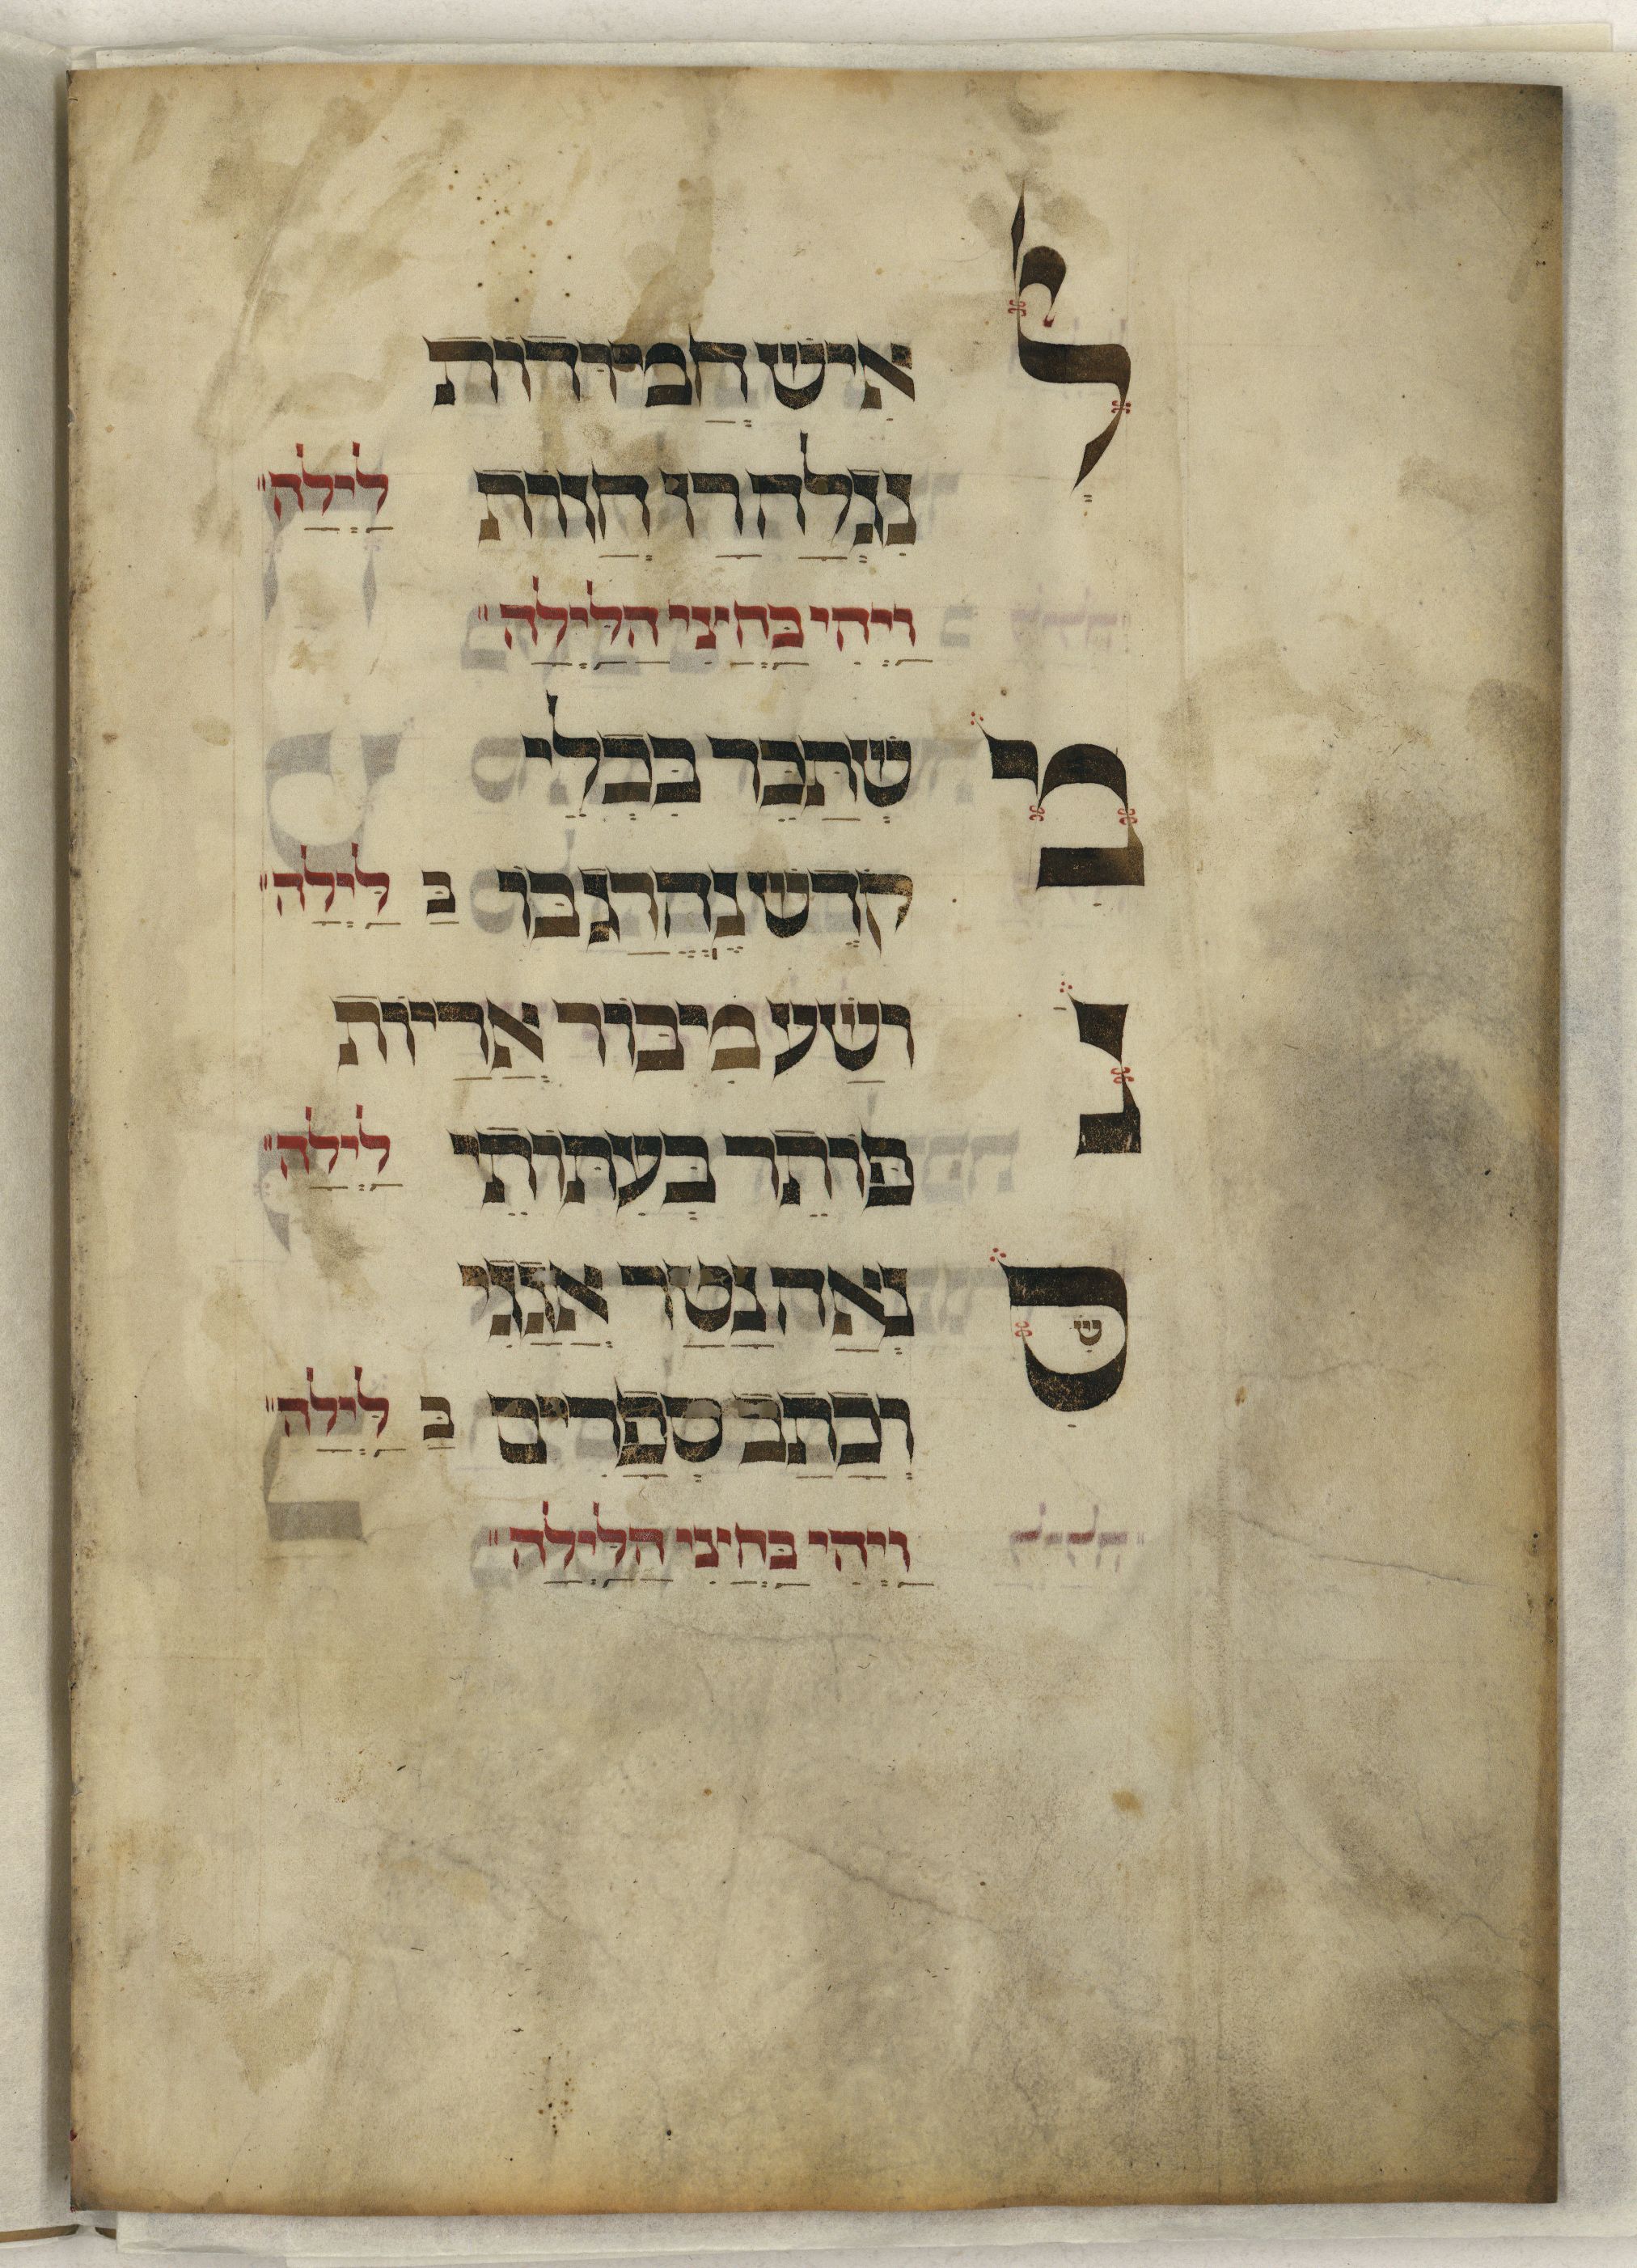 ל איש חמודות
נגלה רז חזות לילה
ויהי בחצי הלילה
מ שתכר בכלי
קדש נהרג בו ב לילה
נ ושע מבור אריות
פותר בעתותי לילה
ס ש נאה נטר אגגי
וכתב ספרים ב לילה
ויהי בחצי הלילה